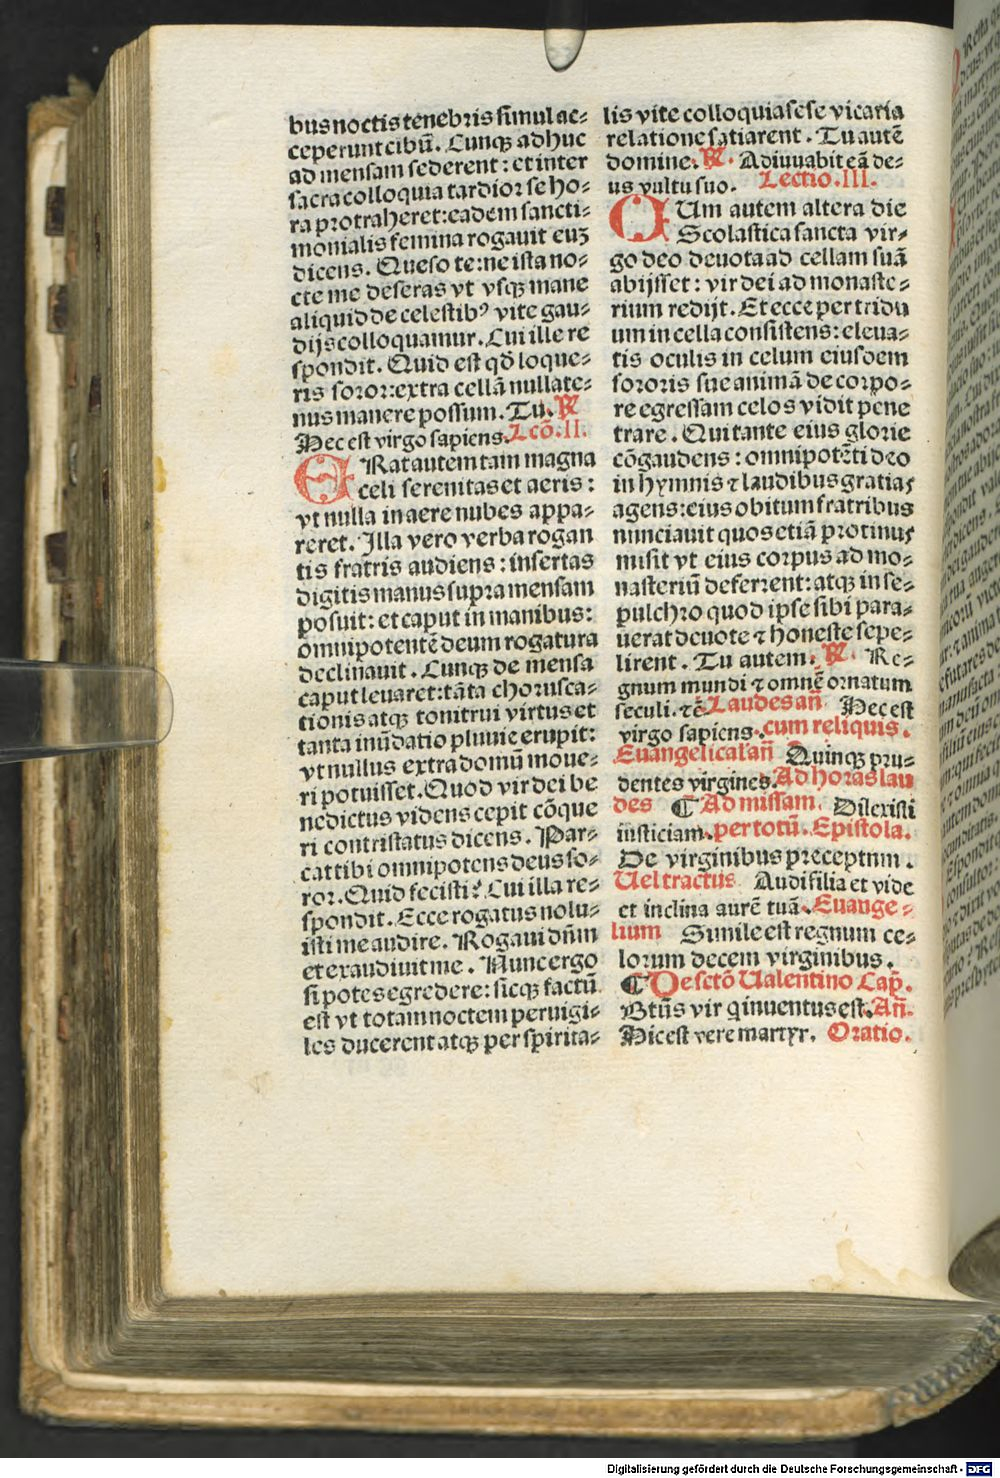 bus noctis tenebris simul ac-
ceperunt cibū. Cunqꝫ adhuc
ad mensam sederent: et inter
sacra colloquia tardior se ho-
ra protraheret: eadem sancti-
monialis femina rogauit euꝫ
dicens. Queso te: ne ista no-
cte me deseras vt vsqꝫ mane
aliquid de celestibꝰ vite gau-
dijs colloquamur. Cui ille re
spondit. Quid est qđ loque-
ris soror: extra cellā nullate-
nus manere possum. Tu. ℟
Hec est virgo sapiens. Lcō. II.
ERat autem tam magna
celi serenitas et aeris:
vt nulla in aere nubes appa-
reret. Illa vero verba rogan
tis fratris audiens: insertas
digitis manus supra mensam
posuit: et caput in manibus:
omnipotentē deum rogatura
declinauit. Cunqꝫ de mensa
caput leuaret: tāta chorusca-
tionis atqꝫ tonitrui virtus et
tanta inūdatio pluuie erupit:
vt nullus extra domū moue-
ri potuisset. Quod vir dei be
nedictus videns cepit cōque
ri contristatus dicens. Par-
cat tibi omnipotens deus so-
ror. Quid fecisti? Cui illa re-
spondit. Ecce rogatus nolu-
isti me audire. Rogaui dn̄m
et exaudiuit me. Nunc ergo
si potes egredere: sicqꝫ factū
est vt totam noctem peruigi-
les ducerent atqꝫ per spirita-
lis vite colloquia sese vicaria
relatione satiarent. Tu autē
domine. ℟. Adiuuabit eā de-
us vultu suo. Lectio. III.
CUm autem altera die
Scolastica sancta vir-
go deo deuota ad cellam suā
abijsset: vir dei ad monaste-
rium redijt. Et ecce per tridu
um in cella consistens: eleua-
tis oculis in celum eiusdem
sororis sue animā de corpo-
re egressam celos vidit pene
trare. Qui tante eius glorie
cōgaudens: omnipotēti deo
in hymnis ⁊ laudibus gratias
agens: eius obitum fratribus
nunciauit quos etiā protinus
misit vt eius corpus ad mo-
nasteriū deferrent: atqꝫ in se-
pulchro quod ipse sibi para-
uerat deuote ⁊ honeste sepe-
lirent. Tu autem. ℟. Re-
gnum mundi ⁊ omnē ornatum
seculi. ⁊ c̄ Laudes an̄ Hec est
virgo sapiens. cum reliquis.
Euangelical' an̄ Quinqꝫ pru-
dentes virgines. Ad horas lau
des ¶ Ad missam. Dilexisti
iusticiam. per totū. Epistola.
De virginibus preceptum.
Uel tractus Audi filia et vide
et inclina aurē tuā. Euange-
lium Simile est regnum ce-
lorum decem virginibus.
¶ De sctō Ualentino Cap̄.
Btūs vir q inuentus est. An̄.
Hic est vere martyr. Oratio.
Digitalisierung gefördert durch die Deutsche Forschungsgemeinschaft - DFG